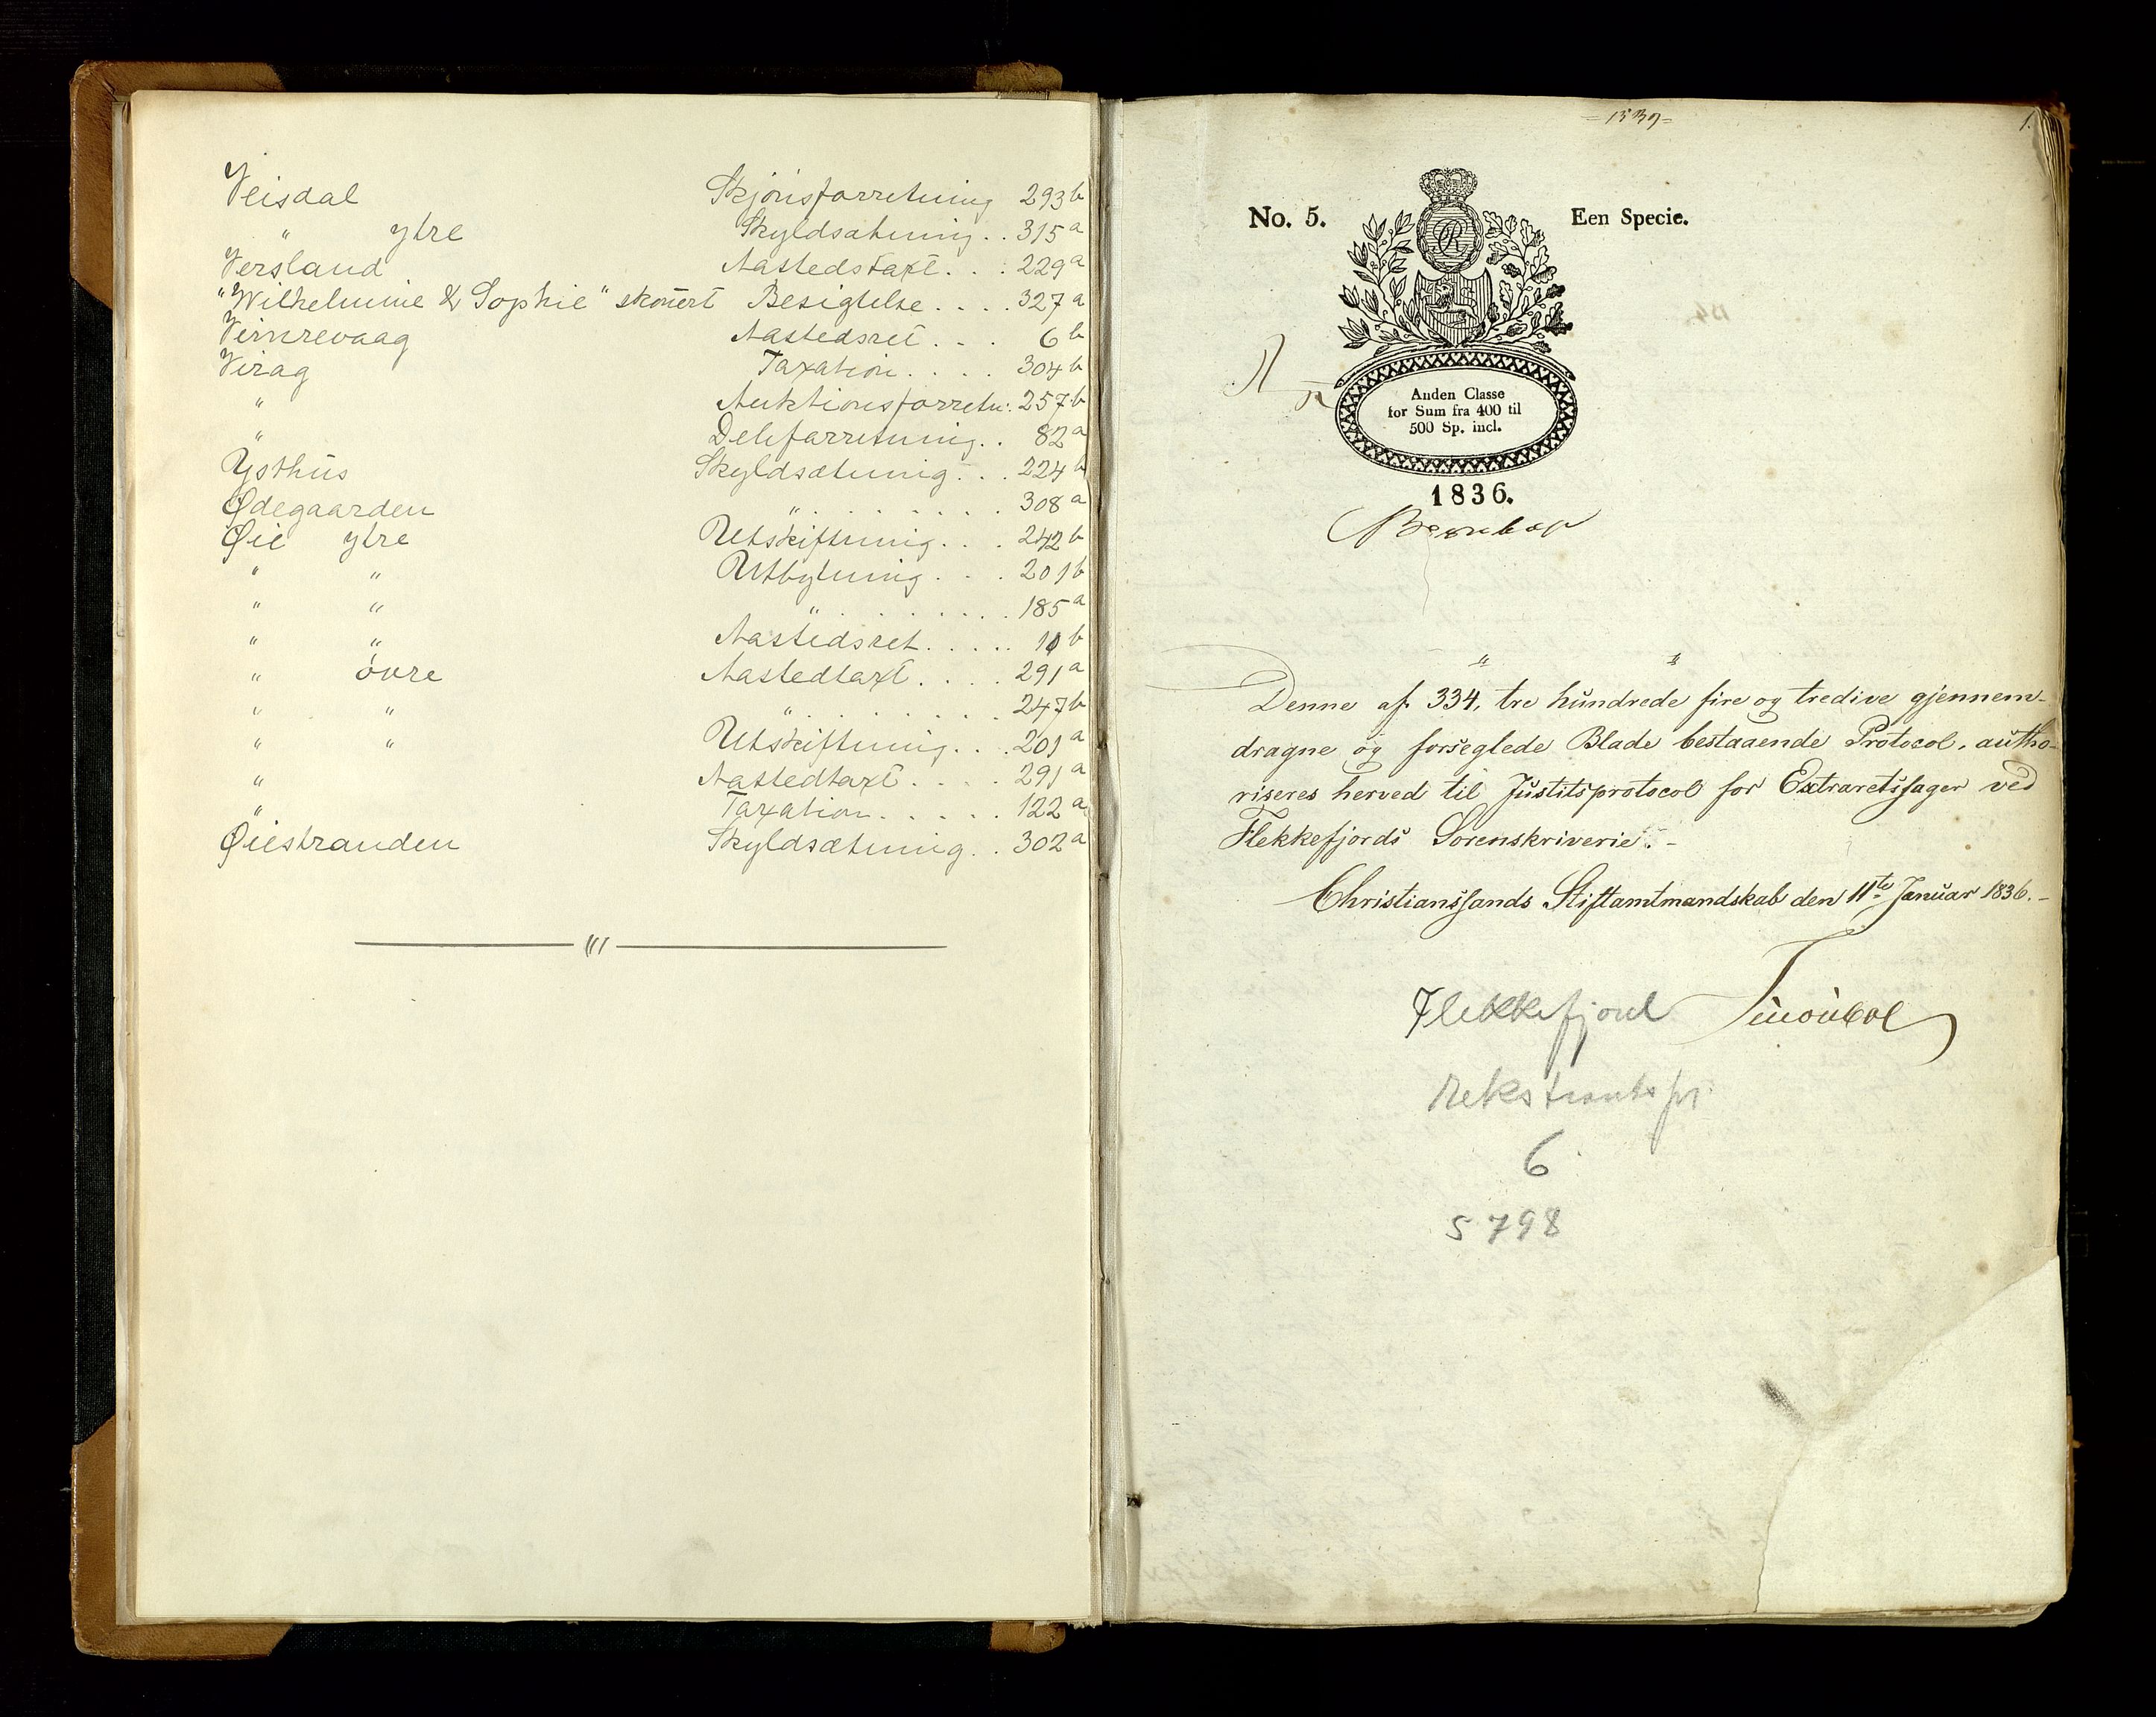 Veisdal Skjönsforretning 293 b
" ytre Skyldsætning . . 315 a
Versland Aastedstaxt . . . 229 a
"Wilhelmine & Sophie" skonert Besigtelse . . . . 327 a
Virnrevaag Aastedsret . . . 6 b
Virag Taxation . . . . 304 b
" Auktionsforretn: 257 b
" Deleforretning . . 82 a
Ysthus Skyldsætning . . . 224 b
Ødegaarden " . . . . . . . . 308 a
Øie ytre Utskiftning . . . 242 b
" " Utbytning . . . 201 b
" " " . . . . . . . . 185 a
" " Aastedsret . . . . . 10 b
" övre Aastedtaxt . . . . 291 a
" " " . . . . . . . . 247 b
" " Utskiftning . . . 201 a
" Aastedtaxt . . . . 291 a
" Taxation . . . . . 122 a
Øiestranden Skyldsætning . . 302 a
= 1539 =
1.
No. 5. Een Specie.
R
Anden Classe
for Sum fra 400 til
500 Sp. incl.
1836.
Denne af 334, tre hundrede fire og tredive gjennem-
dragne og forseglede Blade bestaaende Protocol, autho-
riseres herved til Justitsprotocol for Extraretssager ved
Flekkefjords Sorenskriverie. -
Christianssands Stiftamtmandskab den 11te Januar 1836. -
Flekkefjord
6
5798